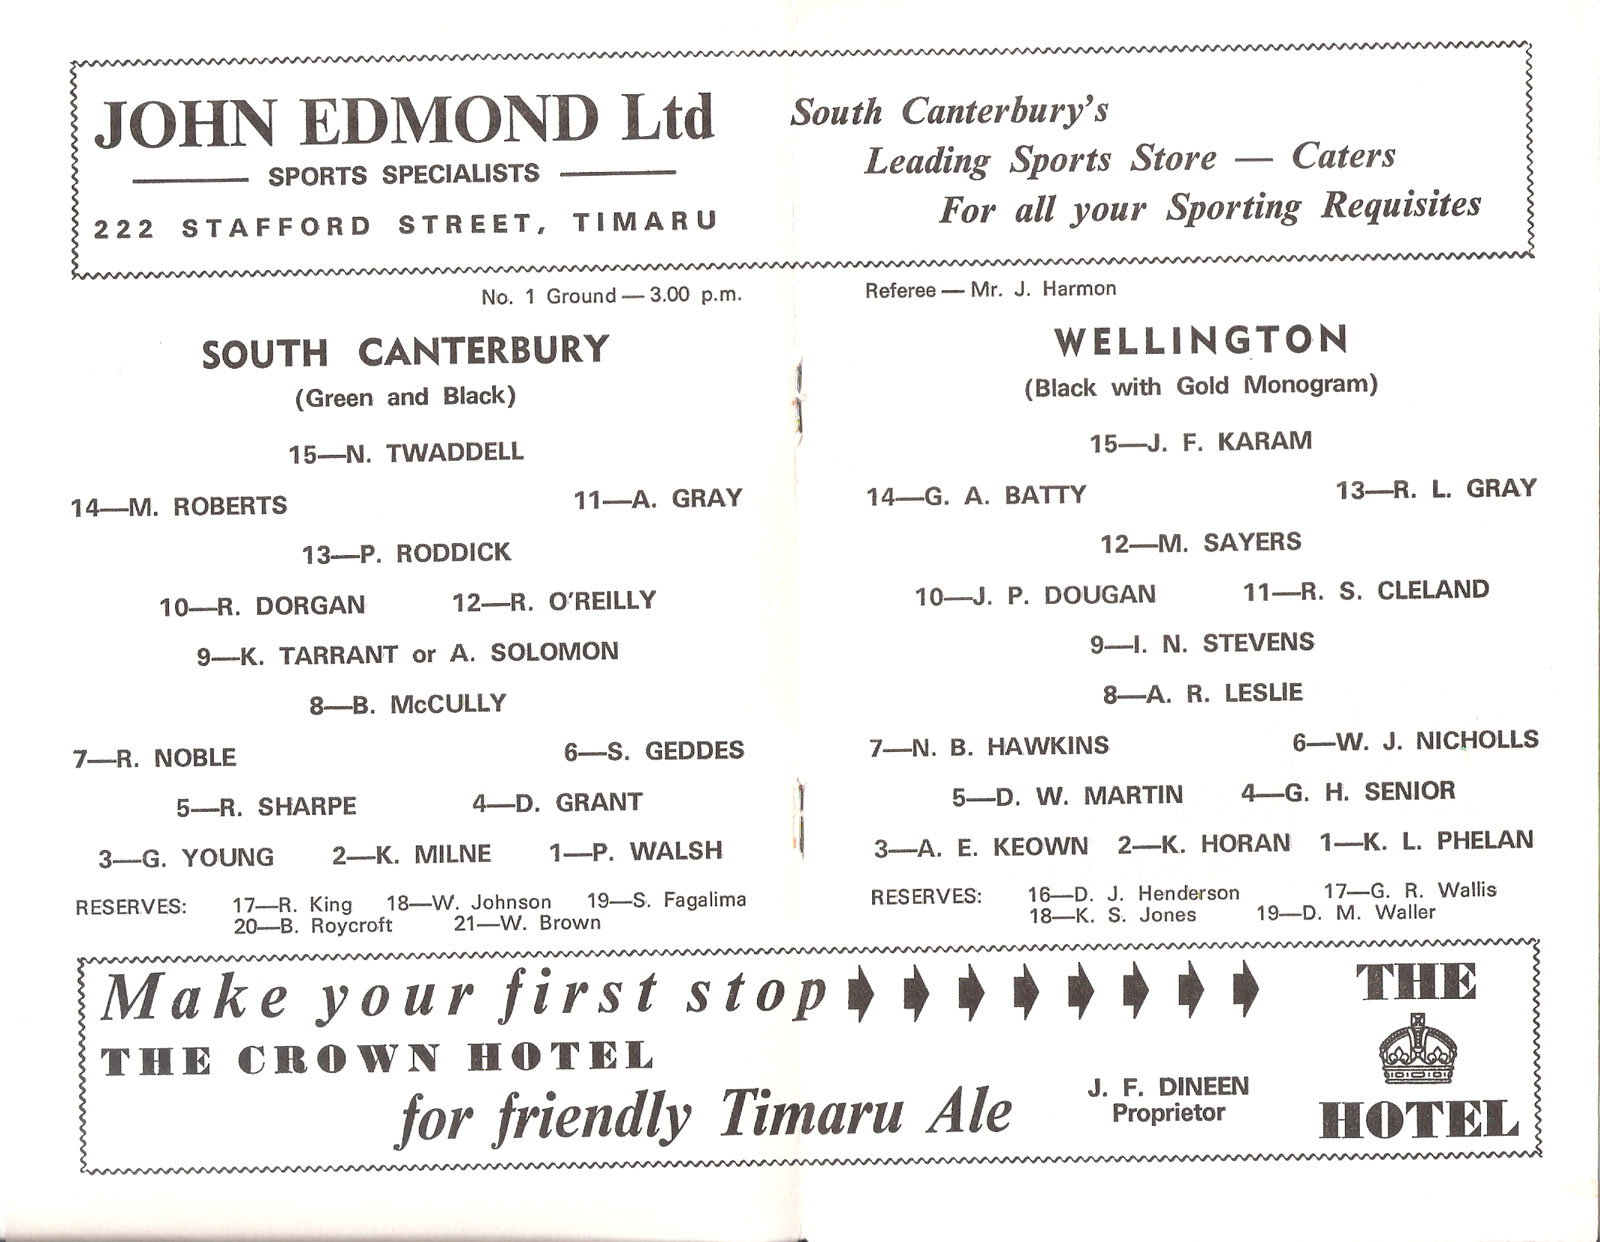 JOHN EDMOND Ltd
SPORTS SPECIALISTS
222 STAFFORD STREET, TIMARU
South Canterbury's
Leading Sports Store — Caters
For all your Sporting Requisites
No. 1 Ground — 3.00 p.m.
SOUTH CANTERBURY
(Green and Black)
15—N. TWADDELL
14—M. ROBERTS 11—A. GRAY
13—P. RODDICK
10—R. DORGAN 12—R. O'REILLY
9—K. TARRANT or A. SOLOMON
8—B. McCULLY
7—R. NOBLE 6—S. GEDDES
5—R. SHARPE 4—D. GRANT
3—G. YOUNG 2—K. MILNE 1—P. WALSH
RESERVES: 17—R. King 18—W. Johnson 19—S. Fagalima
20—B. Roycroft 21—W. Brown
Referee — Mr. J. Harmon
WELLINGTON
(Black with Gold Monogram)
15—J. F. KARAM
14—G. A. BATTY 13—R. L. GRAY
12—M. SAYERS
10—J. P. DOUGAN 11—R. S. CLELAND
9—I. N. STEVENS
8—A. R. LESLIE
7—N. B. HAWKINS 6—W. J. NICHOLLS
5—D. W. MARTIN 4—G. H. SENIOR
3—A. E. KEOWN 2—K. HORAN 1—K. L. PHELAN
RESERVES: 16—D. J. Henderson 17—G. R. Wallis
18—K. S. Jones 19—D. M. Waller
Make your first stop
THE CROWN HOTEL
for friendly Timaru Ale
J. F. DINEEN
Proprietor
THE
HOTEL